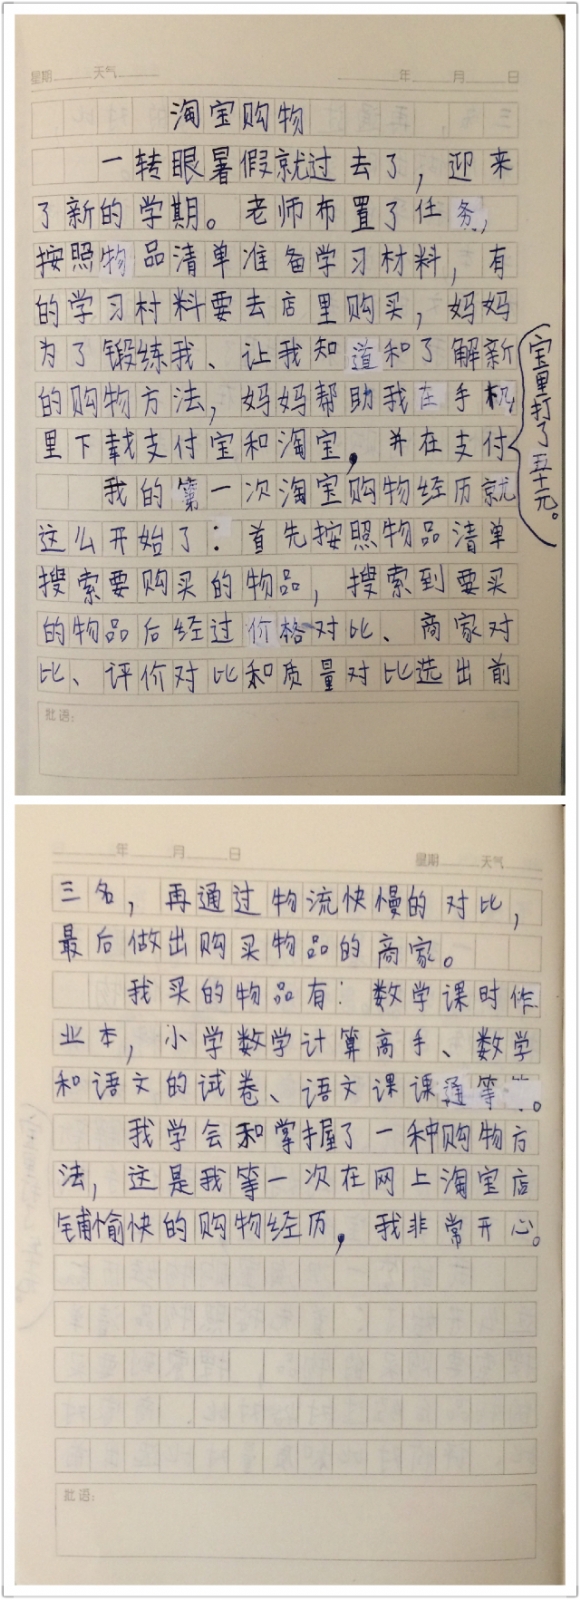 星期 天气 年 月 日
淘宝购物
一转眼暑假就过去了，迎来
了新的学期。老师布置了任务，
按照物品清单准备学习材料，有
的学习材料要去店里购买，妈妈
为了锻练我、让我知道和了解新
的购物方法，妈妈帮助我在手机
里下载支付宝和淘宝，并在支付
宝里打了五十元。
我的第一次淘宝购物经历就
这么开始了：首先按照物品清单
搜索要购买的物品，搜索到要买
的物品后经过价格对比、商家对
比、评价对比和质量对比选出前
批语：
年 月 日 星期 天气
三名，再通过物流快慢的对比，
最后做出购买物品的商家。
我买的物品有：数学课时作
业本，小学数学计算高手、数学
和语文的试卷、语文课课通等等。
我学会和掌握了一种购物方
法，这是我等一次在网上淘宝店
铺愉快的购物经历，我非常开心。
批语：